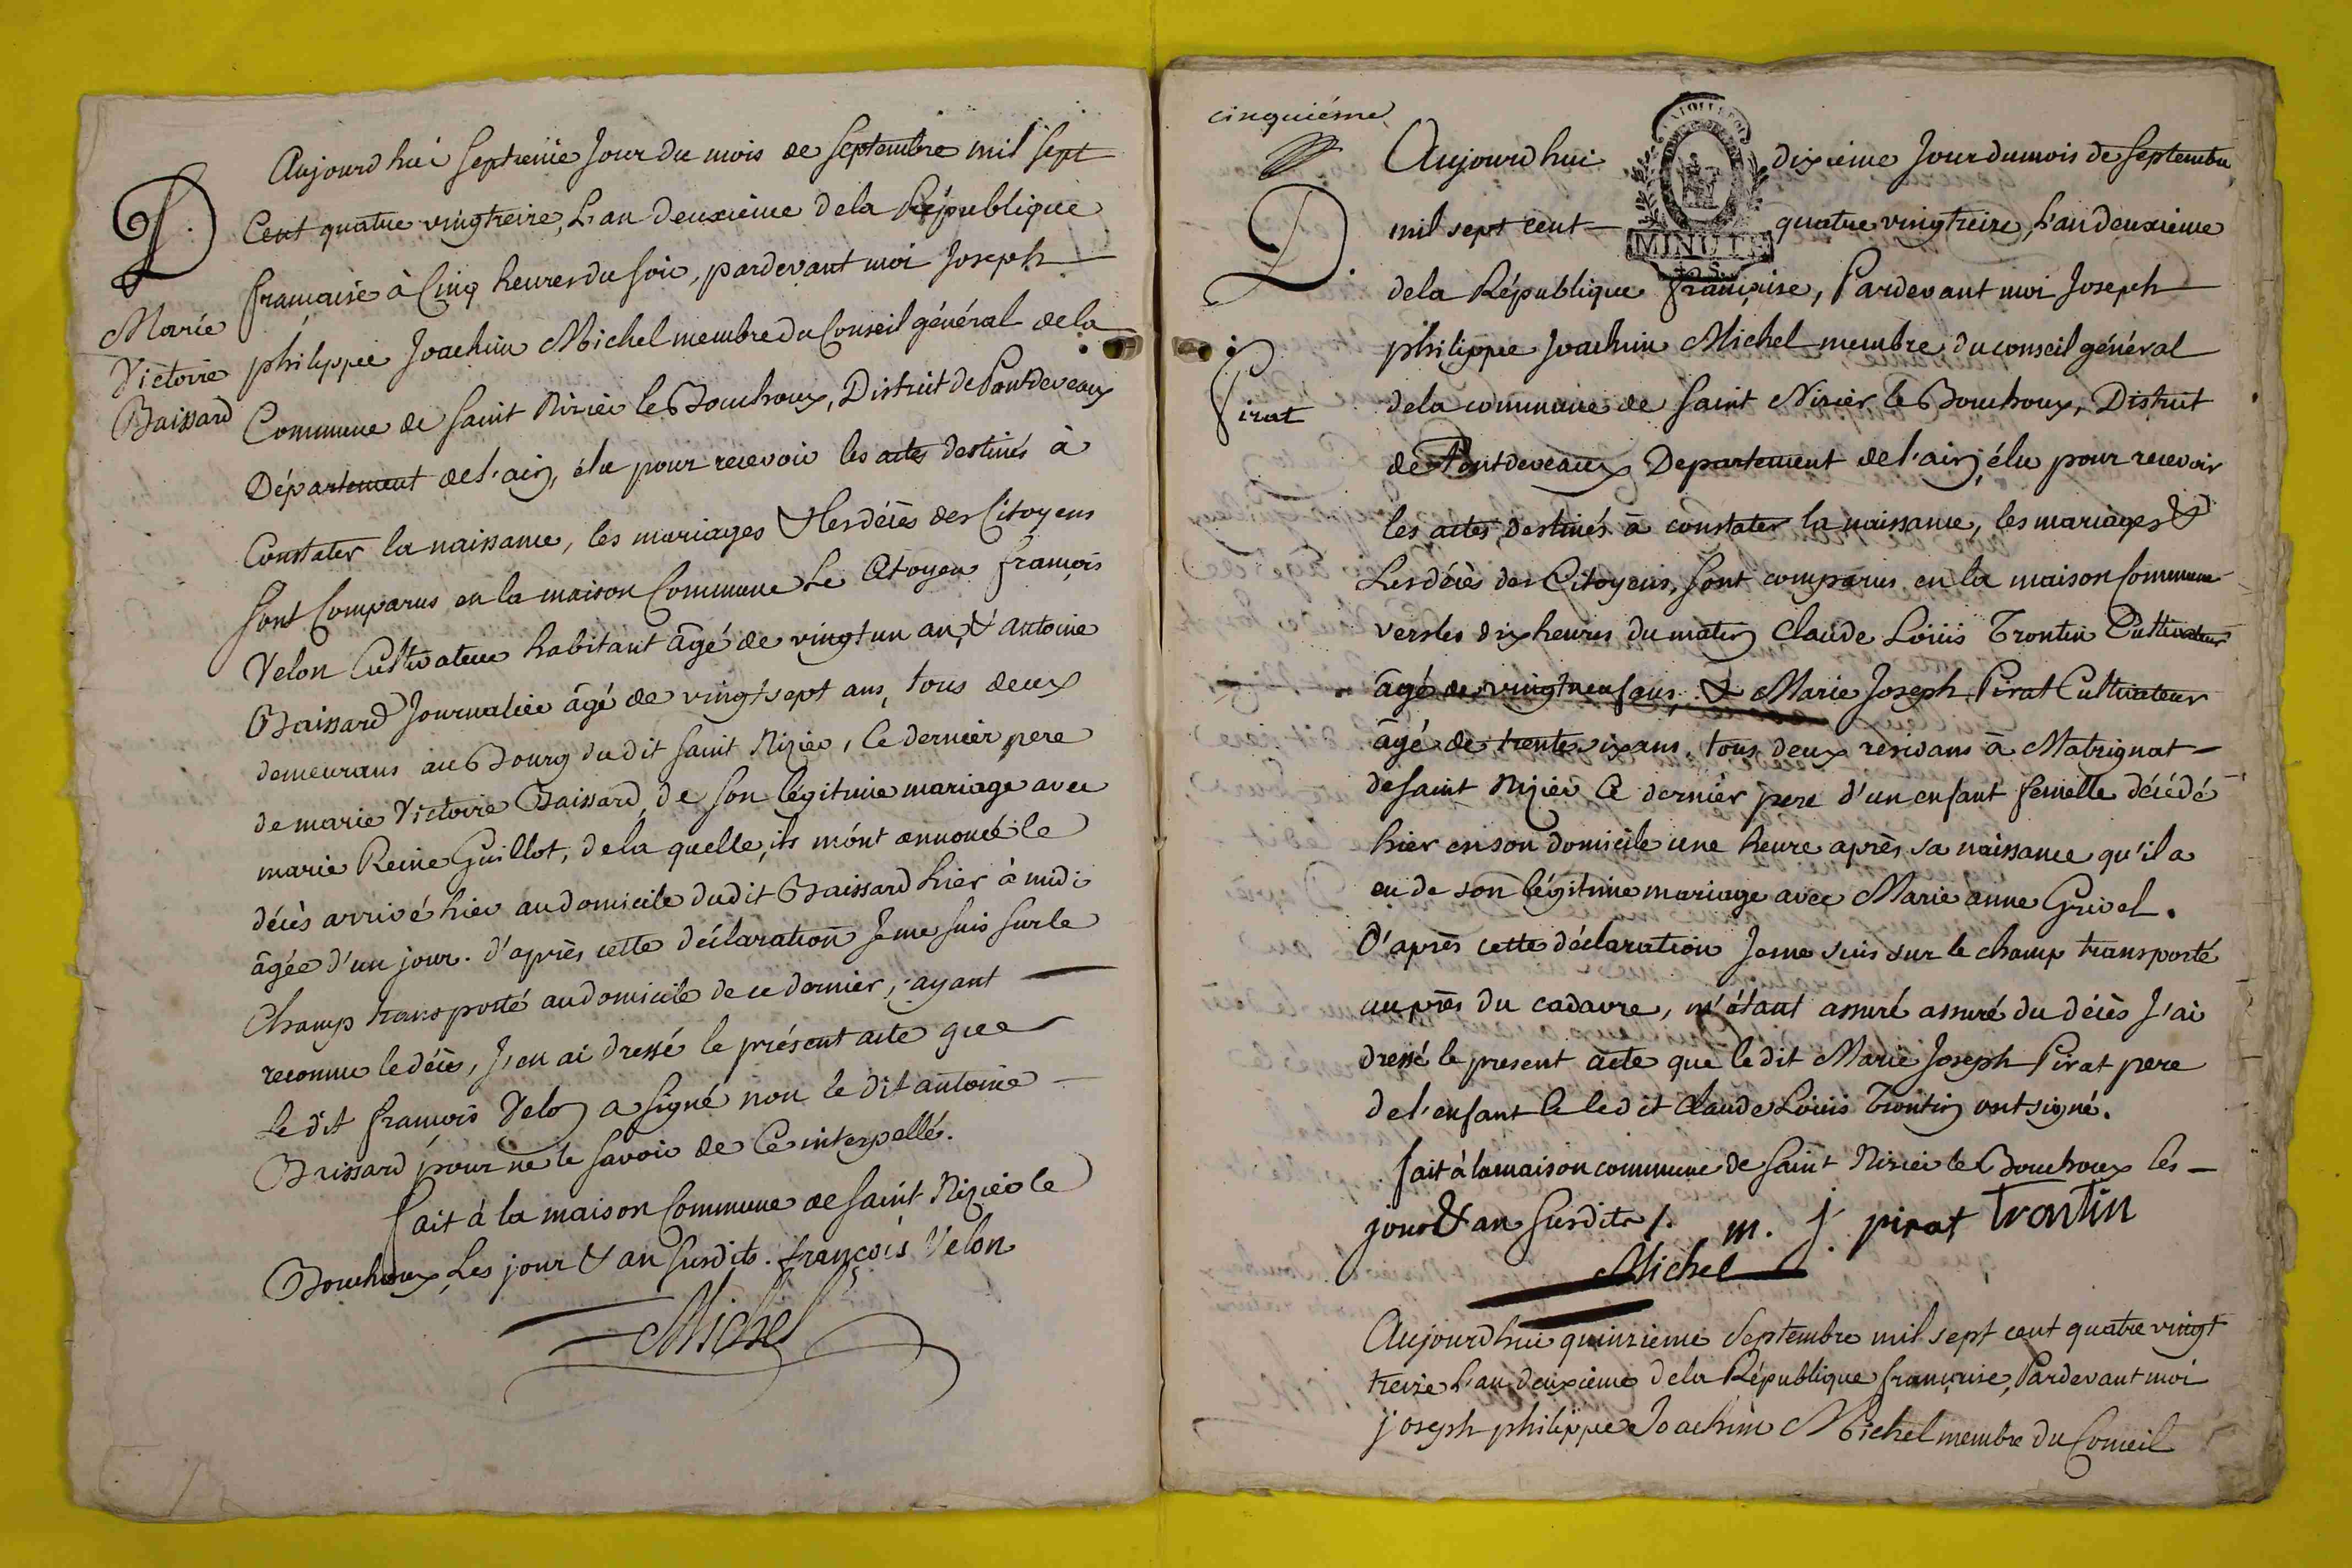 Aujourd'hui septieme Jour du mois de Septembre mil sept
D.
Cent quatre vingt treize, L'an deuxieme de la République
française à Cinq heures du soir, pardevant moi Joseph
Marie
Victoire
Baissard
philippe Joachim Michel membre du Conseil général de la
Commune de Saint Nizier le Bouchoux, District de Pontdevaux
Département de l'ain, élu pour recevoir les actes destinés à
Constater la naissance, les mariages & les décès des Citoyens
sont Comparus en la maison Commune Le Citoyen françois
Velon Cultivateur habitant âgé de vingt un an, & antoine
Baissard Journalier âgé de vingt sept ans, tous deux
demeurans au Bourg du dit saint Nizier, le dernier pere
de marie Victoire Baissard, de son légitime mariage avec
marie Reine Guillot, de la quelle, ils m'ont annoncé le
décès arrivé hier au domicile dudit Baissard hier à midi
âgée d'un jour. d'après cette déclaration Je me suis sur le
Champ transporté au domicile de ce dernier, ayant
reconnu le décès, J'en ai dressé le présent acte que
Le dit françois Velon a signé non le dit antoine
Baissard pour ne le savoir de Ce interpellé.
fait à la maison Commune de Saint Nizier le
Bouchoux, Les jour & an susdits. françois Velon
Michel
cinquiéme
Aujourd'hui dixieme Jour du mois de Septembre
D.
mil sept cent quatre vingt treize, L'an deuxieme
MINUTE
de la République française, Pardevant moi Joseph
philippe Joachim Michel membre du conseil général
Pirat
de la commune de saint Nizier le Bouchoux, District
de Pontdeveaux Departement de l'ain, élu pour recevoir
les actes destinés à constater la naissance, les mariages &
Les décès des Citoyens, sont comparus en la maison Commune
vers les dix heures du matin Claude Loüis Trontin Cultivateur
âgé de vingt neuf ans, & Marie Joseph Pirat Cultivateur
âgé de trente six ans, tous deux residans à Matrignat
de saint Nizier, Ce dernier pere d'un enfant femelle décédé
hier en son domicile une heure après sa naissance qu'il a
eu de son légitime mariage avec Marie anne Grivel.
D'après cette déclaration Je me suis sur le champ transporté
auprès du cadavre, m'étant assuré assuré du décès J'ai
dressé le present acte que le dit Marie Joseph Pirat pere
de l'enfant & le dit Claude Loüis Trontin ont signé.
fait à la maison commune de saint Nizier le Bouchoux les
jour & an susdits /. m. j. pirat trontin
Michel
Aujourd'hui quinzieme Septembre mil sept cent quatre vingt
treize L'an deuxieme de la République française, Pardevant moi
joseph philippe Joachim Michel membre du Conseil